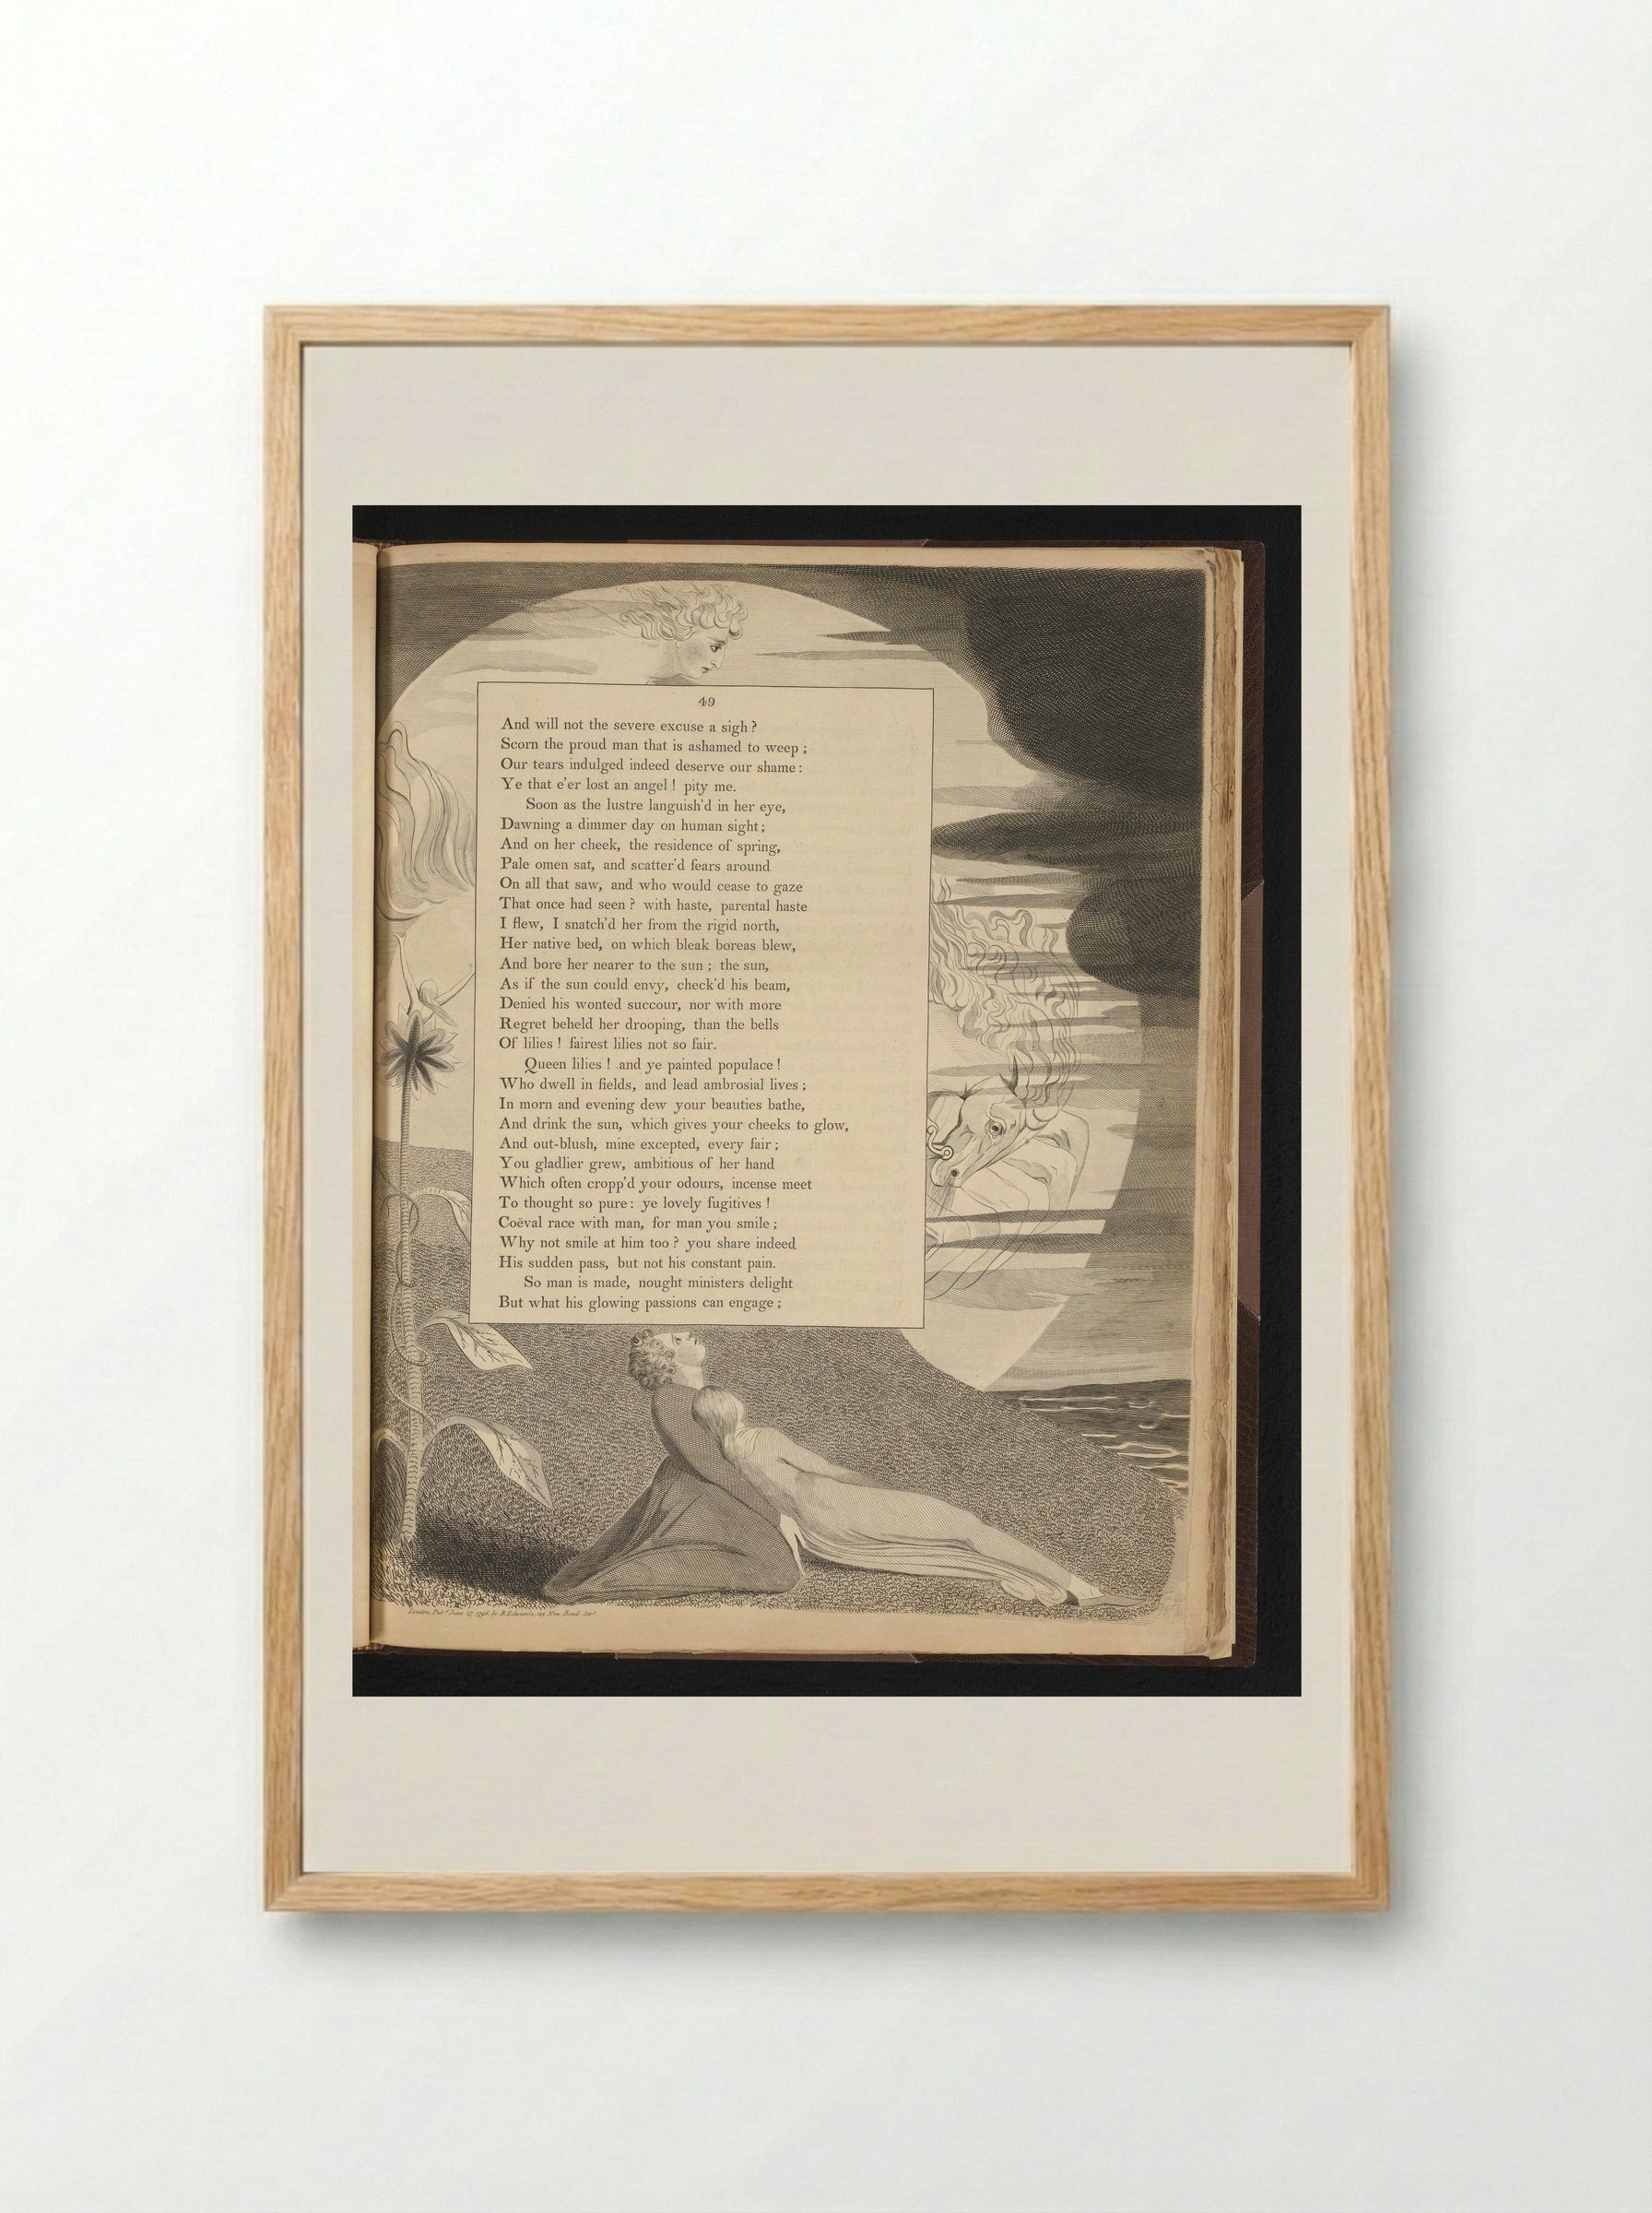 49
And will not the severe excuse a sigh?
Scorn the proud man that is ashamed to weep;
Our tears indulged indeed deserve our shame:
Ye that e'er lost an angel! pity me.
Soon as the lustre languish'd in her eye,
Dawning a dimmer day on human sight;
And on her cheek, the residence of spring,
Pale omen sat, and scatter'd fears around
On all that saw, and who would cease to gaze
That once had seen? with haste, parental haste
I flew, I snatch'd her from the rigid north,
Her native bed, on which bleak boreas blew,
And bore her nearer to the sun; the sun,
As if the sun could envy, check'd his beam,
Denied his wonted succour, nor with more
Regret beheld her drooping, than the bells
Of lilies! fairest lilies not so fair.
Queen lilies! and ye painted populace!
Who dwell in fields, and lead ambrosial lives;
In morn and evening dew your beauties bathe,
And drink the sun, which gives your cheeks to glow,
And out-blush, mine excepted, every fair;
You gladlier grew, ambitious of her hand
Which often cropp'd your odours, incense meet
To thought so pure: ye lovely fugitives!
Coëval race with man, for man you smile;
Why not smile at him too? you share indeed
His sudden pass, but not his constant pain.
So man is made, nought ministers delight
But what his glowing passions can engage;
London, Pub.d June 27, 1796, by R. Edwards, New Bond Str.t